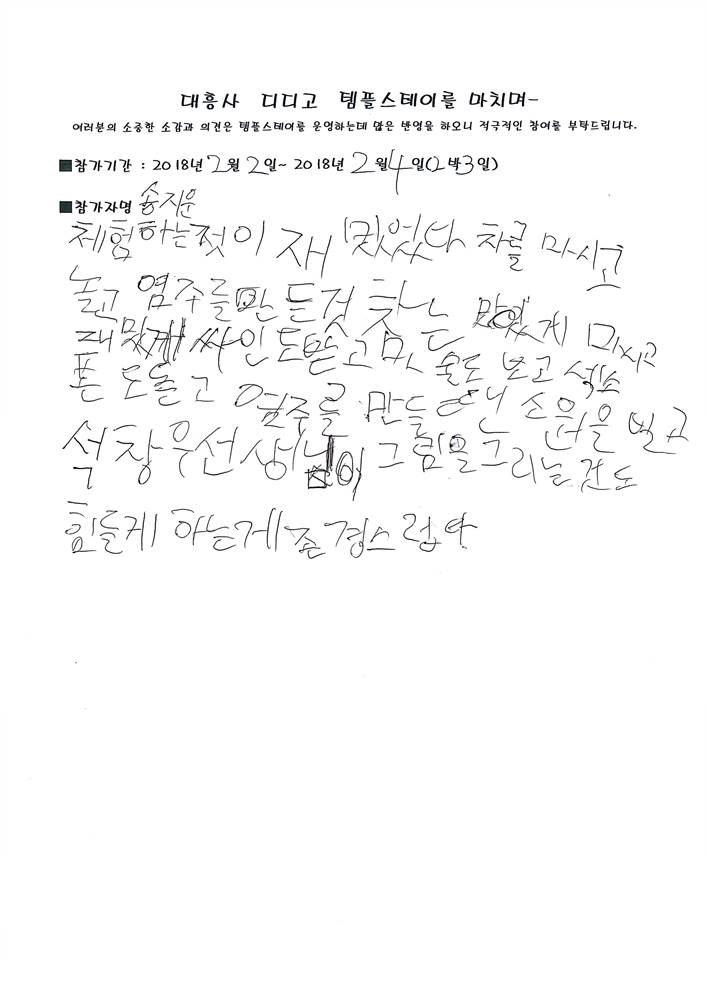 대흥사 디디고 템플스테이를 마치며-
여러분의 소중한 소감과 의견은 템플스테이를 운영하는데 많은 반영을 하오니 적극적인 참여를 부탁드립니다.
■참가기간 : 2018년 2월 2일~ 2018년 2월 4일(2박3일)
■참가자명 송지운
체험하는젓이 재밌었다 차를 마시고
놀고 염주를만든것 찻는 맛있게 마시고
재밌게 싸인도받고 미술도 보고 색소
폰 도듣고 염주를 만들 소원을 빌고
석창우선생님이 그림을그리는건도
힘들게 하는게존경스럽다